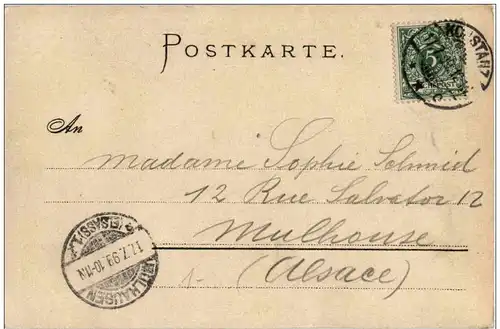 POSTKARTE.
KONSTANZ
5
An
Madame Sophie Schmid
12 Rue Salvator 12
Mulhouse
(Alsace)
MÜLHAUSEN
12.7.99.10-11N.
(ELSASS) 1.